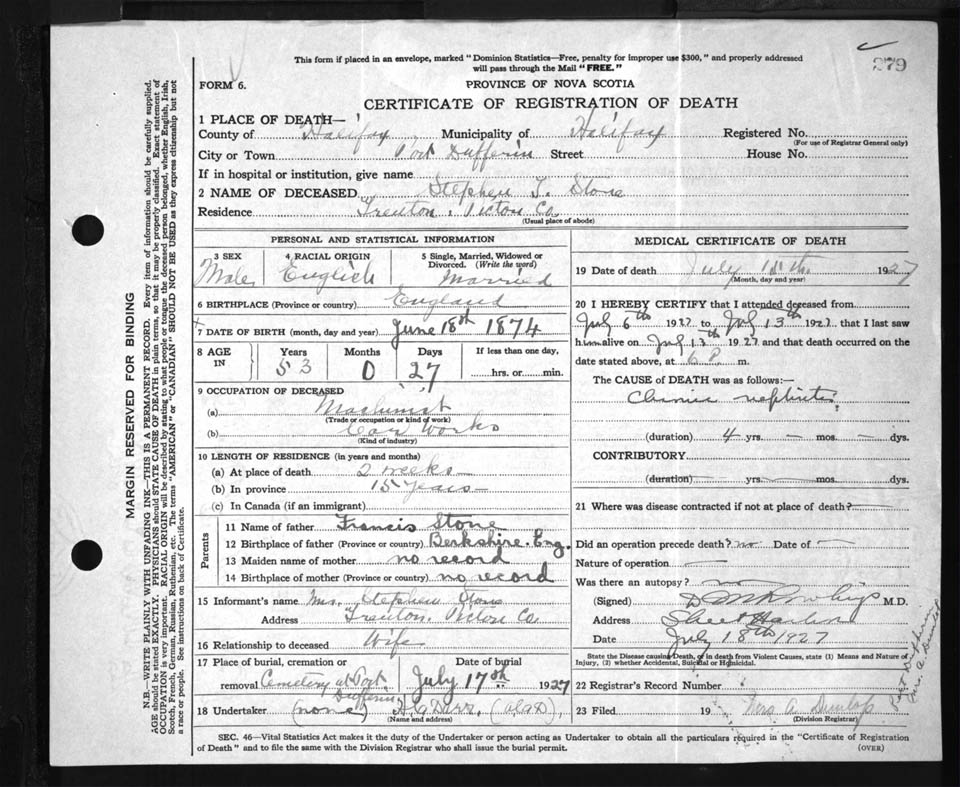 This form if placed in an envelope, marked "Dominion Statistics—Free, penalty for improper use $300," and properly addressed
will pass through the Mail "FREE."
279
FORM 6.
PROVINCE OF NOVA SCOTIA
CERTIFICATE OF REGISTRATION OF DEATH
1 PLACE OF DEATH—
County of Halifax Municipality of Halifax Registered No.
(For use of Registrar General only)
City or Town Port Dufferin Street House No.
If in hospital or institution, give name
2 NAME OF DECEASED Stephen T. Stone
Residence Trenton, Pictou Co.
(Usual place of abode)
PERSONAL AND STATISTICAL INFORMATION
3 SEX Male
4 RACIAL ORIGIN English
5 Single, Married, Widowed or Divorced. (Write the word) Married
6 BIRTHPLACE (Province or country) England
7 DATE OF BIRTH (month, day and year) June 18th 1874
8 AGE IN Years 53 Months 0 Days 27 If less than one day, hrs. or min.
9 OCCUPATION OF DECEASED
(a) Machinist
(Trade or occupation or kind of work)
(b) Car Works
(Kind of industry)
10 LENGTH OF RESIDENCE (in years and months)
(a) At place of death 2 weeks
(b) In province 15 years
(c) In Canada (if an immigrant)
Parents
11 Name of father Francis Stone
12 Birthplace of father (Province or country) Berkshire. Eng.
13 Maiden name of mother no record
14 Birthplace of mother (Province or country) no record
15 Informant's name Mrs. Stephen Stone
Address Trenton. Pictou Co.
16 Relationship to deceased Wife
17 Place of burial, cremation or removal Cemetery at Port Dufferin
Date of burial July 17th 1927
18 Undertaker (none)
(Name and address)
MEDICAL CERTIFICATE OF DEATH
19 Date of death July 15th 1927
(Month, day and year)
20 I HEREBY CERTIFY that I attended deceased from
July 6th 1927 to July 13th 1927 that I last saw
him alive on July 13th 1927 and that death occurred on the
date stated above, at 6 P. m.
The CAUSE of DEATH was as follows:—
Chronic nephritis
(duration) 4 yrs. — mos. — dys.
CONTRIBUTORY
(duration) yrs. mos. dys.
21 Where was disease contracted if not at place of death? —
Did an operation precede death? no Date of —
Nature of operation —
Was there an autopsy? no
(Signed) M.D.
Address Sheet Harbor
Date July 18th 1927
State the Disease causing Death, or in death from Violent Causes, state (1) Means and Nature of
Injury, (2) whether Accidental, Suicidal or Homicidal.
22 Registrar's Record Number
23 Filed 19 Mrs A Dunlop
(Division Registrar)
SEC. 46—Vital Statistics Act makes it the duty of the Undertaker or person acting as Undertaker to obtain all the particulars required in the "Certificate of Registration
of Death" and to file the same with the Division Registrar who shall issue the burial permit.
(OVER)
MARGIN RESERVED FOR BINDING
N.B.—WRITE PLAINLY WITH UNFADING INK—THIS IS A PERMANENT RECORD. Every item of information should be carefully supplied.
AGE should be stated EXACTLY. PHYSICIANS should STATE CAUSE OF DEATH in plain terms, so that it may be properly classified. Exact statement of
OCCUPATION is very important. RACIAL ORIGIN will be described by stating to what people or tongue the deceased person belonged, whether English, Irish,
Scotch, French, German, Russian, Ruthenian, etc. The terms "AMERICAN" or "CANADIAN" SHOULD NOT BE USED as they express citizenship but not
a race or people. See instructions on back of Certificate.